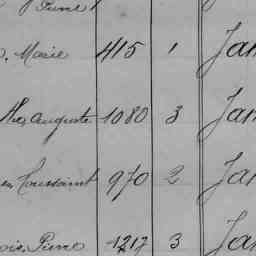 Pierre
Marie 415 1 Jan
Auguste 1080 3 Jan
Toussaint 970 2 Jan
Pierre 1217 3 Jan